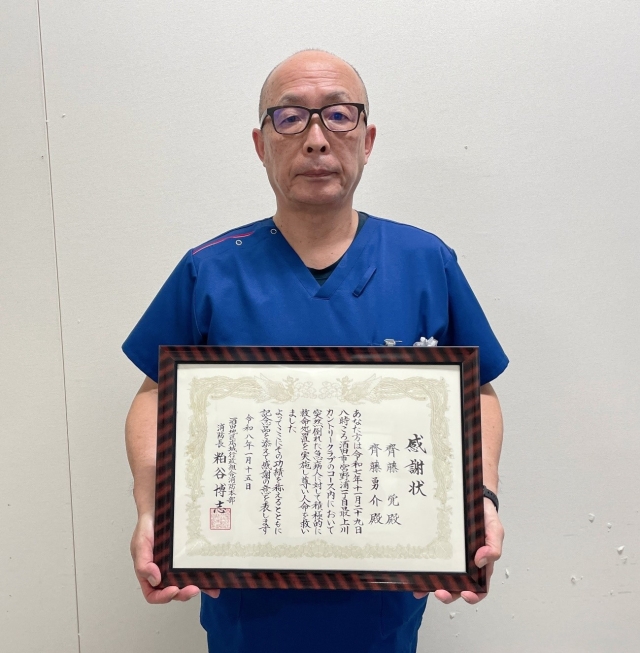 感謝状
齊藤 覚殿
齊藤勇介殿
あなた方は令和七年十一月二十九日
八時ころ酒田市宮野浦一丁目最上川
カントリークラブのコース内において
突然倒れた急病人に対して積極的に
救命処置を実施し尊い人命を救い
ました
よってここにその功績を称えるとともに
記念品を添えて感謝の意を表します
令和八年一月十五日
酒田地区広域行政組合消防本部
消防長 粕谷博志